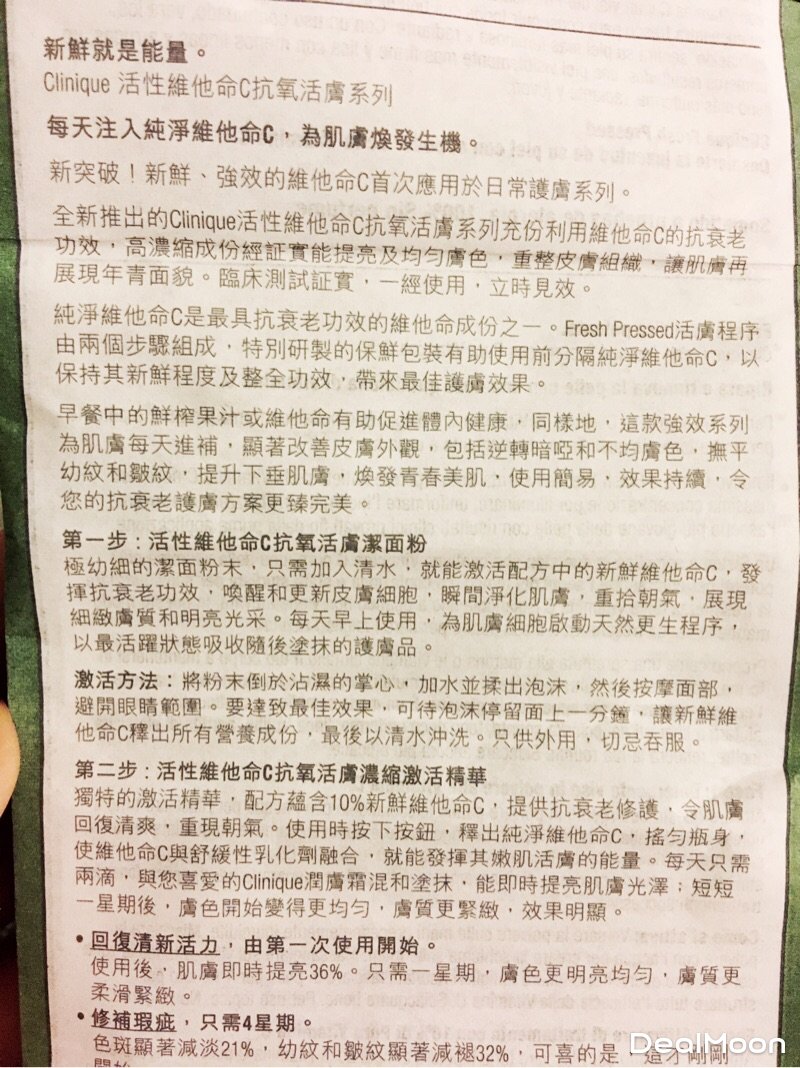 新鮮就是能量。
Clinique 活性維他命C抗氧活膚系列
每天注入純淨維他命C，為肌膚煥發生機。
新突破！新鮮、強效的維他命C首次應用於日常護膚系列。
全新推出的Clinique活性維他命C抗氧活膚系列充份利用維他命C的抗衰老
功效，高濃縮成份經証實能提亮及均勻膚色，重整皮膚組織，讓肌膚再
展現年青面貌。臨床測試証實，一經使用，立時見效。
純淨維他命C是最具抗衰老功效的維他命成份之一。Fresh Pressed活膚程序
由兩個步驟組成，特別研製的保鮮包裝有助使用前分隔純淨維他命C，以
保持其新鮮程度及整全功效，帶來最佳護膚效果。
早餐中的鮮榨果汁或維他命有助促進體內健康，同樣地，這款強效系列
為肌膚每天進補，顯著改善皮膚外觀，包括逆轉暗啞和不均膚色，撫平
幼紋和皺紋，提升下垂肌膚，煥發青春美肌，使用簡易，效果持續，令
您的抗衰老護膚方案更臻完美。
第一步：活性維他命C抗氧活膚潔面粉
極幼細的潔面粉末，只需加入清水，就能激活配方中的新鮮維他命C，發
揮抗衰老功效，喚醒和更新皮膚細胞，瞬間淨化肌膚，重拾朝氣，展現
細緻膚質和明亮光采。每天早上使用，為肌膚細胞啟動天然更生程序，
以最活躍狀態吸收隨後塗抹的護膚品。
激活方法：將粉末倒於沾濕的掌心，加水並揉出泡沫，然後按摩面部，
避開眼睛範圍。要達致最佳效果，可待泡沫停留面上一分鐘，讓新鮮維
他命C釋出所有營養成份，最後以清水沖洗。只供外用，切忌吞服。
第二步：活性維他命C抗氧活膚濃縮激活精華
獨特的激活精華，配方蘊含10%新鮮維他命C，提供抗衰老修護，令肌膚
回復清爽，重現朝氣。使用時按下按鈕，釋出純淨維他命C，搖勻瓶身，
使維他命C與舒緩性乳化劑融合，就能發揮其嫩肌活膚的能量。每天只需
兩滴，與您喜愛的Clinique潤膚霜混和塗抹，能即時提亮肌膚光澤；短短
一星期後，膚色開始變得更均勻，膚質更緊緻，效果明顯。
• 回復清新活力，由第一次使用開始。
使用後，肌膚即時提亮36%。只需一星期，膚色更明亮均勻，膚質更
柔滑緊緻。
• 修補瑕疵，只需4星期。
色斑顯著減淡21%，幼紋和皺紋顯著減褪32%，可喜的是，這才剛剛
DealMoon